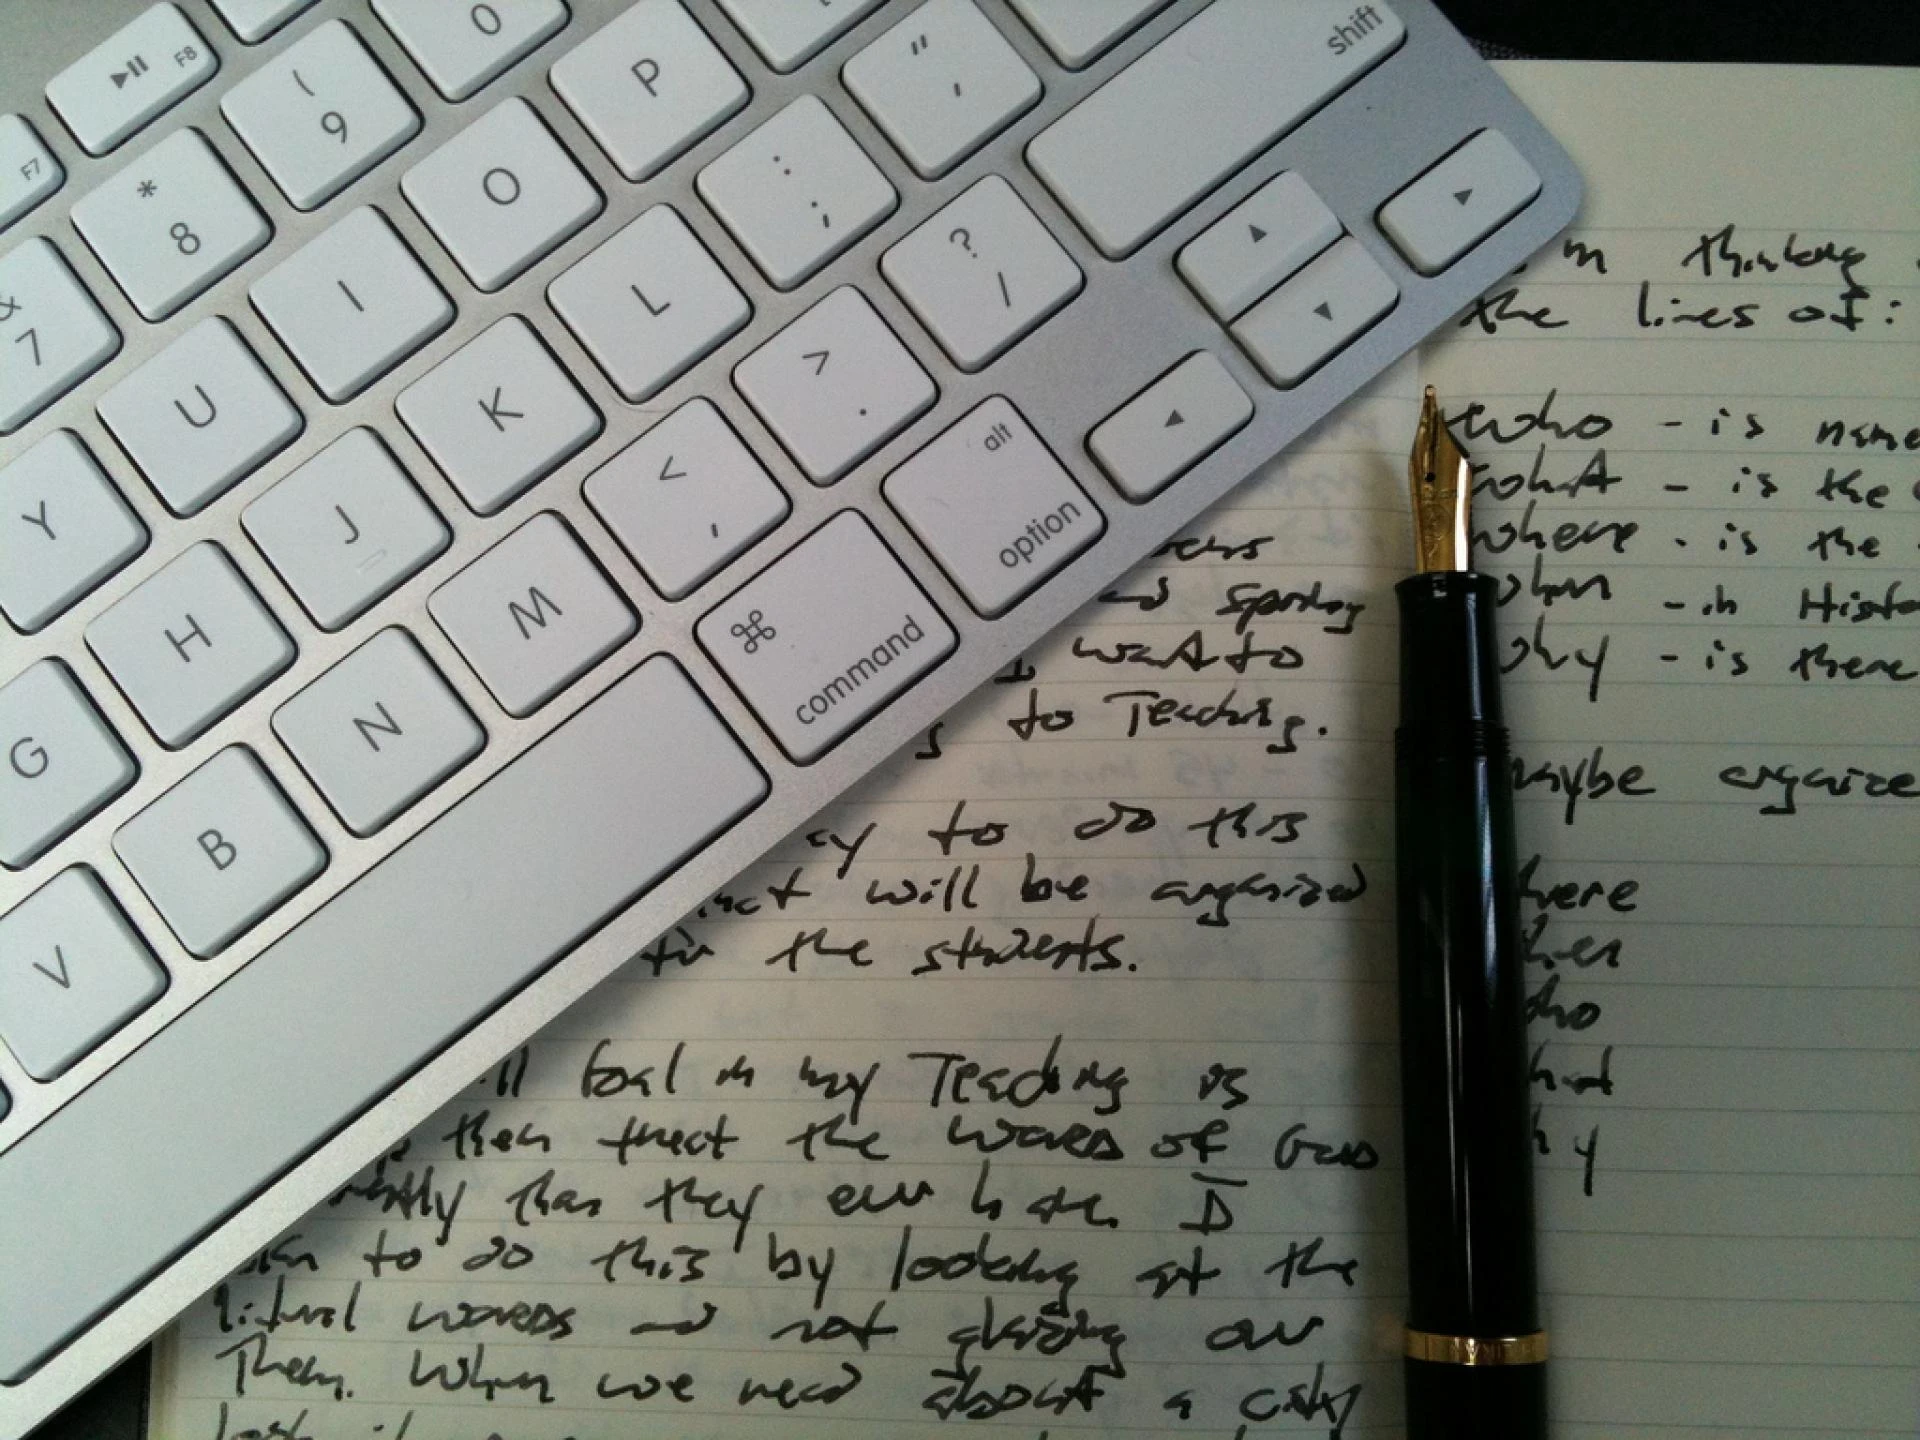 F7
▶II F8
& 7
* 8
( 9
0
Y
U
I
O
P
G
H
J
K
L
: ;
" '
V
B
N
M
< ,
> .
? /
shift
⌘ command
alt option
▲
▼
thinking
the lines of:
who - is name
what - is the
where - is the
when - in Histo
why - is there
maybe organize
here
hen
ho
hat
hy
I want to
to Teaching.
to do this
will be organized
the students.
ll Goal in my Teaching is
then treat the words of God
than they ever have. I
to do this by looking at the
literal words and not glazing over
Them. When we read about a city